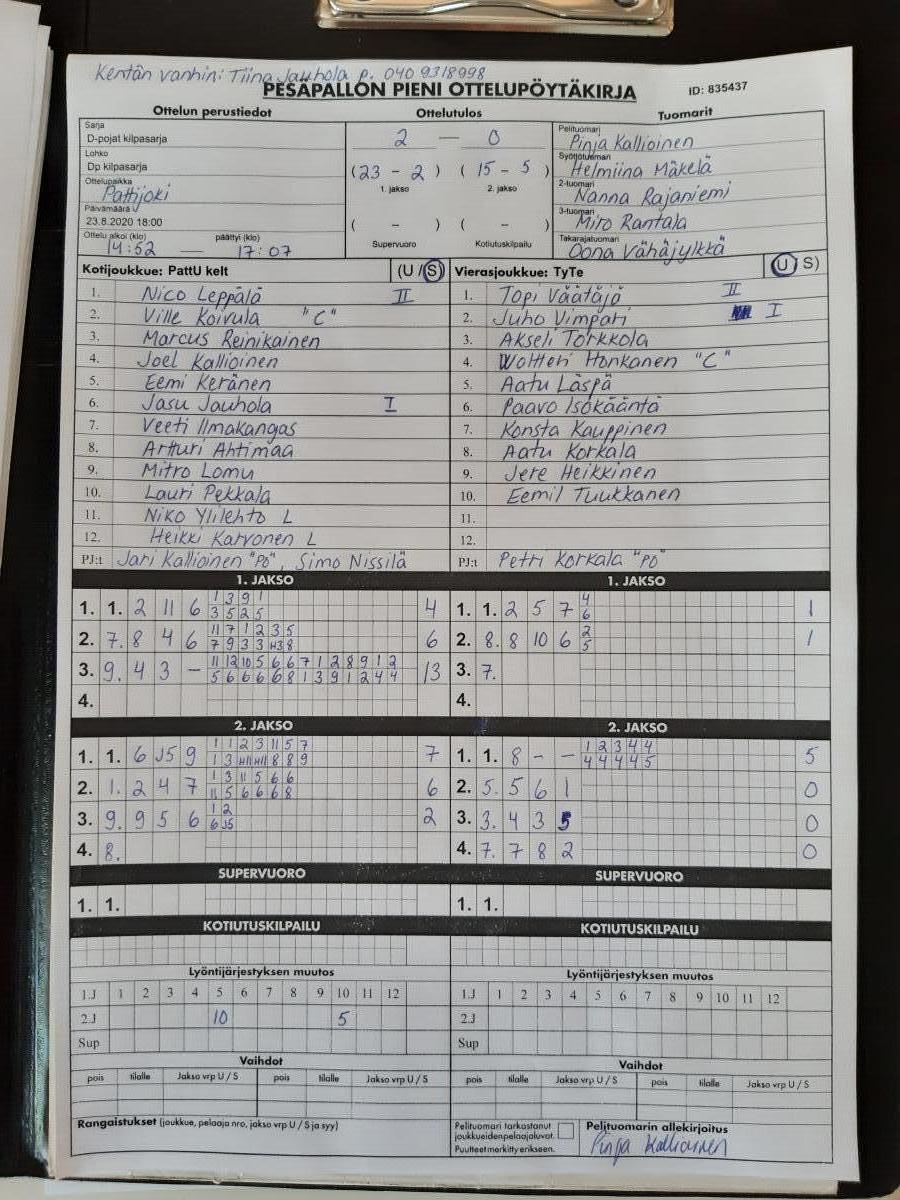 Kentän vanhin: Tiina Jauhola p. 040 9318998
PESÄPALLON PIENI OTTELUPÖYTÄKIRJA
ID: 835437
Ottelun perustiedot
Sarja
D-pojat kilpasarja
Lohko
Dp kilpasarja
Ottelupaikka
Pattijoki
Päivämäärä
23.8.2020 18:00
Ottelu alkoi (klo) päättyi (klo)
14:52 17:07
Ottelutulos
2 — 0
(23 - 2) (15 - 5)
1. jakso 2. jakso
( - ) ( - )
Supervuoro Kotiutuskilpailu
Tuomarit
Pelituomari
Pinja Kallioinen
Syöttötuomari
Helmiina Mäkelä
2-tuomari
Nanna Rajaniemi
3-tuomari
Miro Rantala
Takarajatuomari
Oona Vähäjylkkä
Kotijoukkue: PattU kelt (U / S)
1. Nico Leppälä II
2. Ville Koivula "C"
3. Marcus Reinikainen
4. Joel Kallioinen
5. Eemi Keränen
6. Jasu Jauhola I
7. Veeti Ilmakangas
8. Artturi Ahtimaa
9. Mitro Lomu
10. Lauri Pekkala
11. Niko Ylilehto L
12. Heikki Karvonen L
PJ:t Jari Kallioinen "PO", Simo Nissilä
Vierasjoukkue: TyTe (U / S)
1. Topi Väätäjä II
2. Juho Vimpari I
3. Akseli Torkkola
4. Woltteri Honkanen "C"
5. Aatu Läspä
6. Paavo Isokääntä
7. Konsta Kauppinen
8. Aatu Korkala
9. Jere Heikkinen
10. Eemil Tuukkanen
11.
12.
PJ:t Petri Korkala "PO"
1. JAKSO
1. 1. 2 11 6 4
1 3 9 1
3 5 2 5
2. 7. 8 4 6 6
11 7 1 2 3 5
7 9 3 3 H3 8
3. 9. 4 3 - 13
11 12 10 5 6 6 7 1 2 8 9 1 2
5 6 6 6 6 8 1 3 9 1 2 4 4
4.
1. JAKSO
1. 1. 2 5 7 1
4
6
2. 8. 8 10 6 1
2
5
3. 7.
4.
2. JAKSO
1. 1. 6 J5 9 7
1 1 2 3 11 5 7
1 3 H11 H11 8 8 9
2. 1. 2 4 7 6
1 3 11 5 6 6
11 5 6 6 6 8
3. 9. 9 5 6 2
1 2
6 J5
4. 8.
2. JAKSO
1. 1. 8 - - 5
1 2 3 4 4
4 4 4 4 5
2. 5. 5 6 1 0
3. 3. 4 3 5 0
4. 7. 7 8 2 0
SUPERVUORO
1. 1.
SUPERVUORO
1. 1.
KOTIUTUSKILPAILU
KOTIUTUSKILPAILU
Lyöntijärjestyksen muutos
1.J 1 2 3 4 5 6 7 8 9 10 11 12
2.J 10 5
Sup
Lyöntijärjestyksen muutos
1.J 1 2 3 4 5 6 7 8 9 10 11 12
2.J
Sup
Vaihdot
pois tilalle Jakso vrp U / S pois tilalle Jakso vrp U / S
Vaihdot
pois tilalle Jakso vrp U / S pois tilalle Jakso vrp U / S
Rangaistukset (joukkue, pelaaja nro, jakso vrp U / S ja syy)
Pelituomari tarkastanut
joukkueiden pelaajaluvat.
Puutteet merkitty erikseen.
Pelituomarin allekirjoitus
Pinja Kallioinen